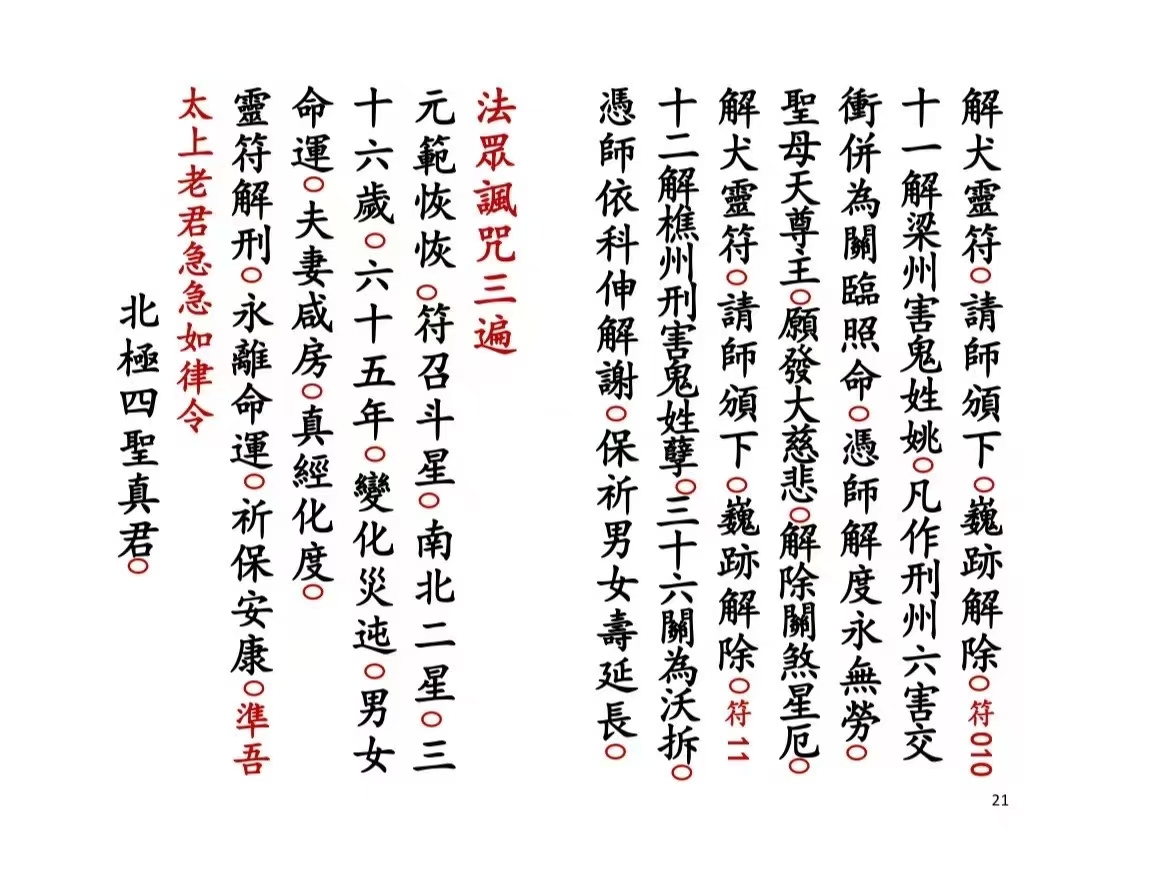 解犬靈符○請師頒下○巍跡解除○符010
十一解梁州害鬼姓姚○凡作刑州六害交
衝併為關臨照命○憑師解度永無勞○
聖母天尊主○願發大慈悲○解除關煞星厄○
解犬靈符○請師頒下○巍跡解除○符11
十二解樵州刑害鬼姓孽○三十六關為沃拆○
憑師依科伸解謝○保祈男女壽延長○
法眾諷咒三遍
元範恢恢○符召斗星○南北二星○三
十六歲○六十五年○變化災迍○男女
命運○夫妻咸房○真經化度○
靈符解刑○永離命運○祈保安康○準吾
太上老君急急如律令
北極四聖真君○
21